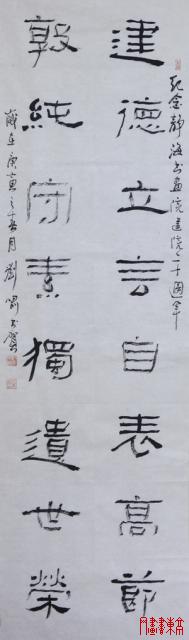 建德立言自表高節
敦純守素獨遺世榮
紀念靜海書画院建院二十週年
歲在庚寅之十五月劉
書賀